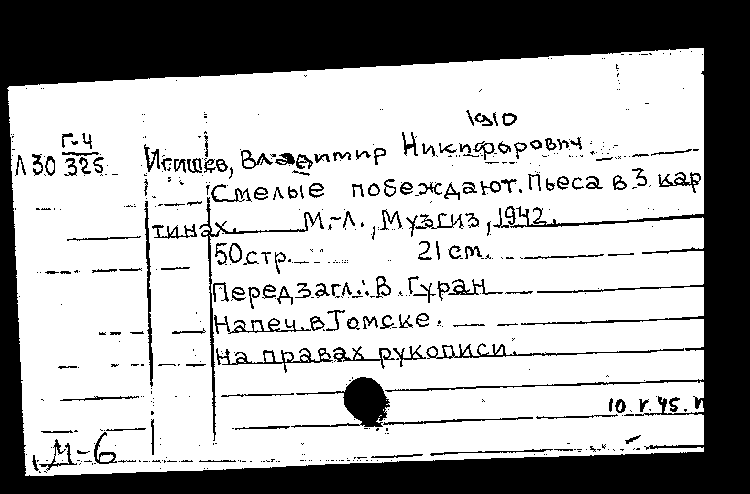 1910
Г-4
Л30 325
Игишев, Владимир Никифорович
Смелые побеждают. Пьеса в 3 кар
тинах. М.-Л., Музгиз, 1942.
50 стр. 21 см.
Перед загл.: В. Гуран
Напеч. в Томске.
На правах рукописи.
10. г. 45.
М-6